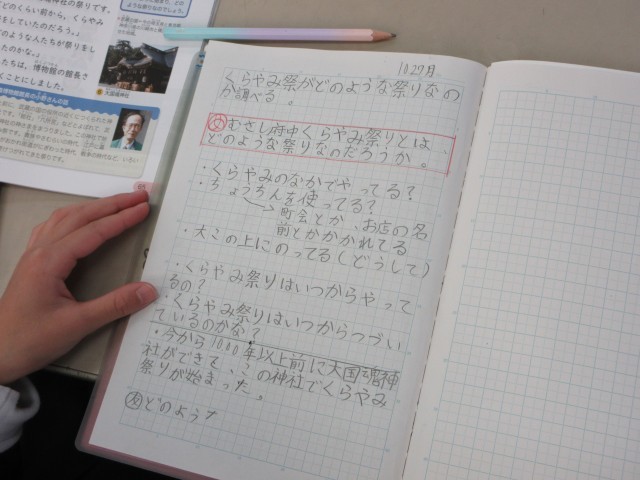 どのくらい前から、くらやみ
をしていたのだろう。」
どのような人たちが祭りを
たのかな。」
たちは、博物館の館長さ
くことにしました。
大國魂神社
10 27月
くらやみ祭がどのような祭りなの
か調べる。
むさし府中くらやみ祭りとは、
どのような祭りなのだろうか。
・くらやみのなかでやってる?
・ちょうちんを使ってる?
町会とか、お店の名
前とかかかれてる
・大この上にのってる(どうして)
・くらやみ祭りはいつからやって
るの?
・くらやみ祭りはいつからつづい
ているのかな?
・今から1000年以上前に大国魂神
社ができて、?の神社でくらやみ
祭りが始まった。
どのような